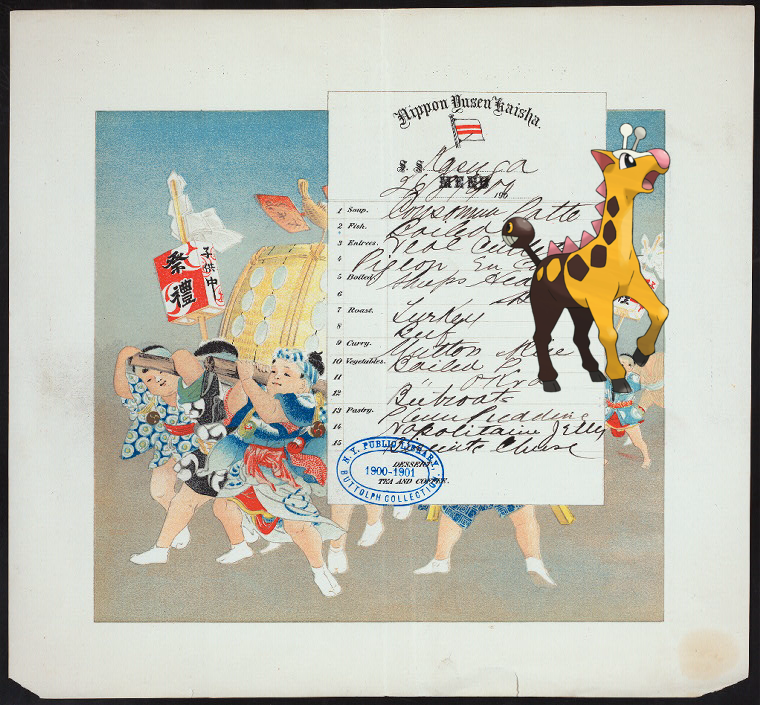 Nippon Yusen Kaisha.
S. S. Kaga
MENU
190
1 Soup. Consommé Patte
2 Fish. Boiled
3 Entrees. Veal Cutle
4 Pigeon En Ca
5 Boiled. Sheeps Hea
6
7 Roast. Turkey
8 Beef
9 Curry. Mutton Rice
10 Vegetables. Boiled
11 Okra
12 Beetroots
13 Pastry. Plum Pudding
14 Napolitaine Jelly
15 Cheese
DESSERT
TEA AND COFFEE.
N.Y. PUBLIC LIBRARY
1900-1901
BUTTOLPH COLLECTION
祭禮
子供中